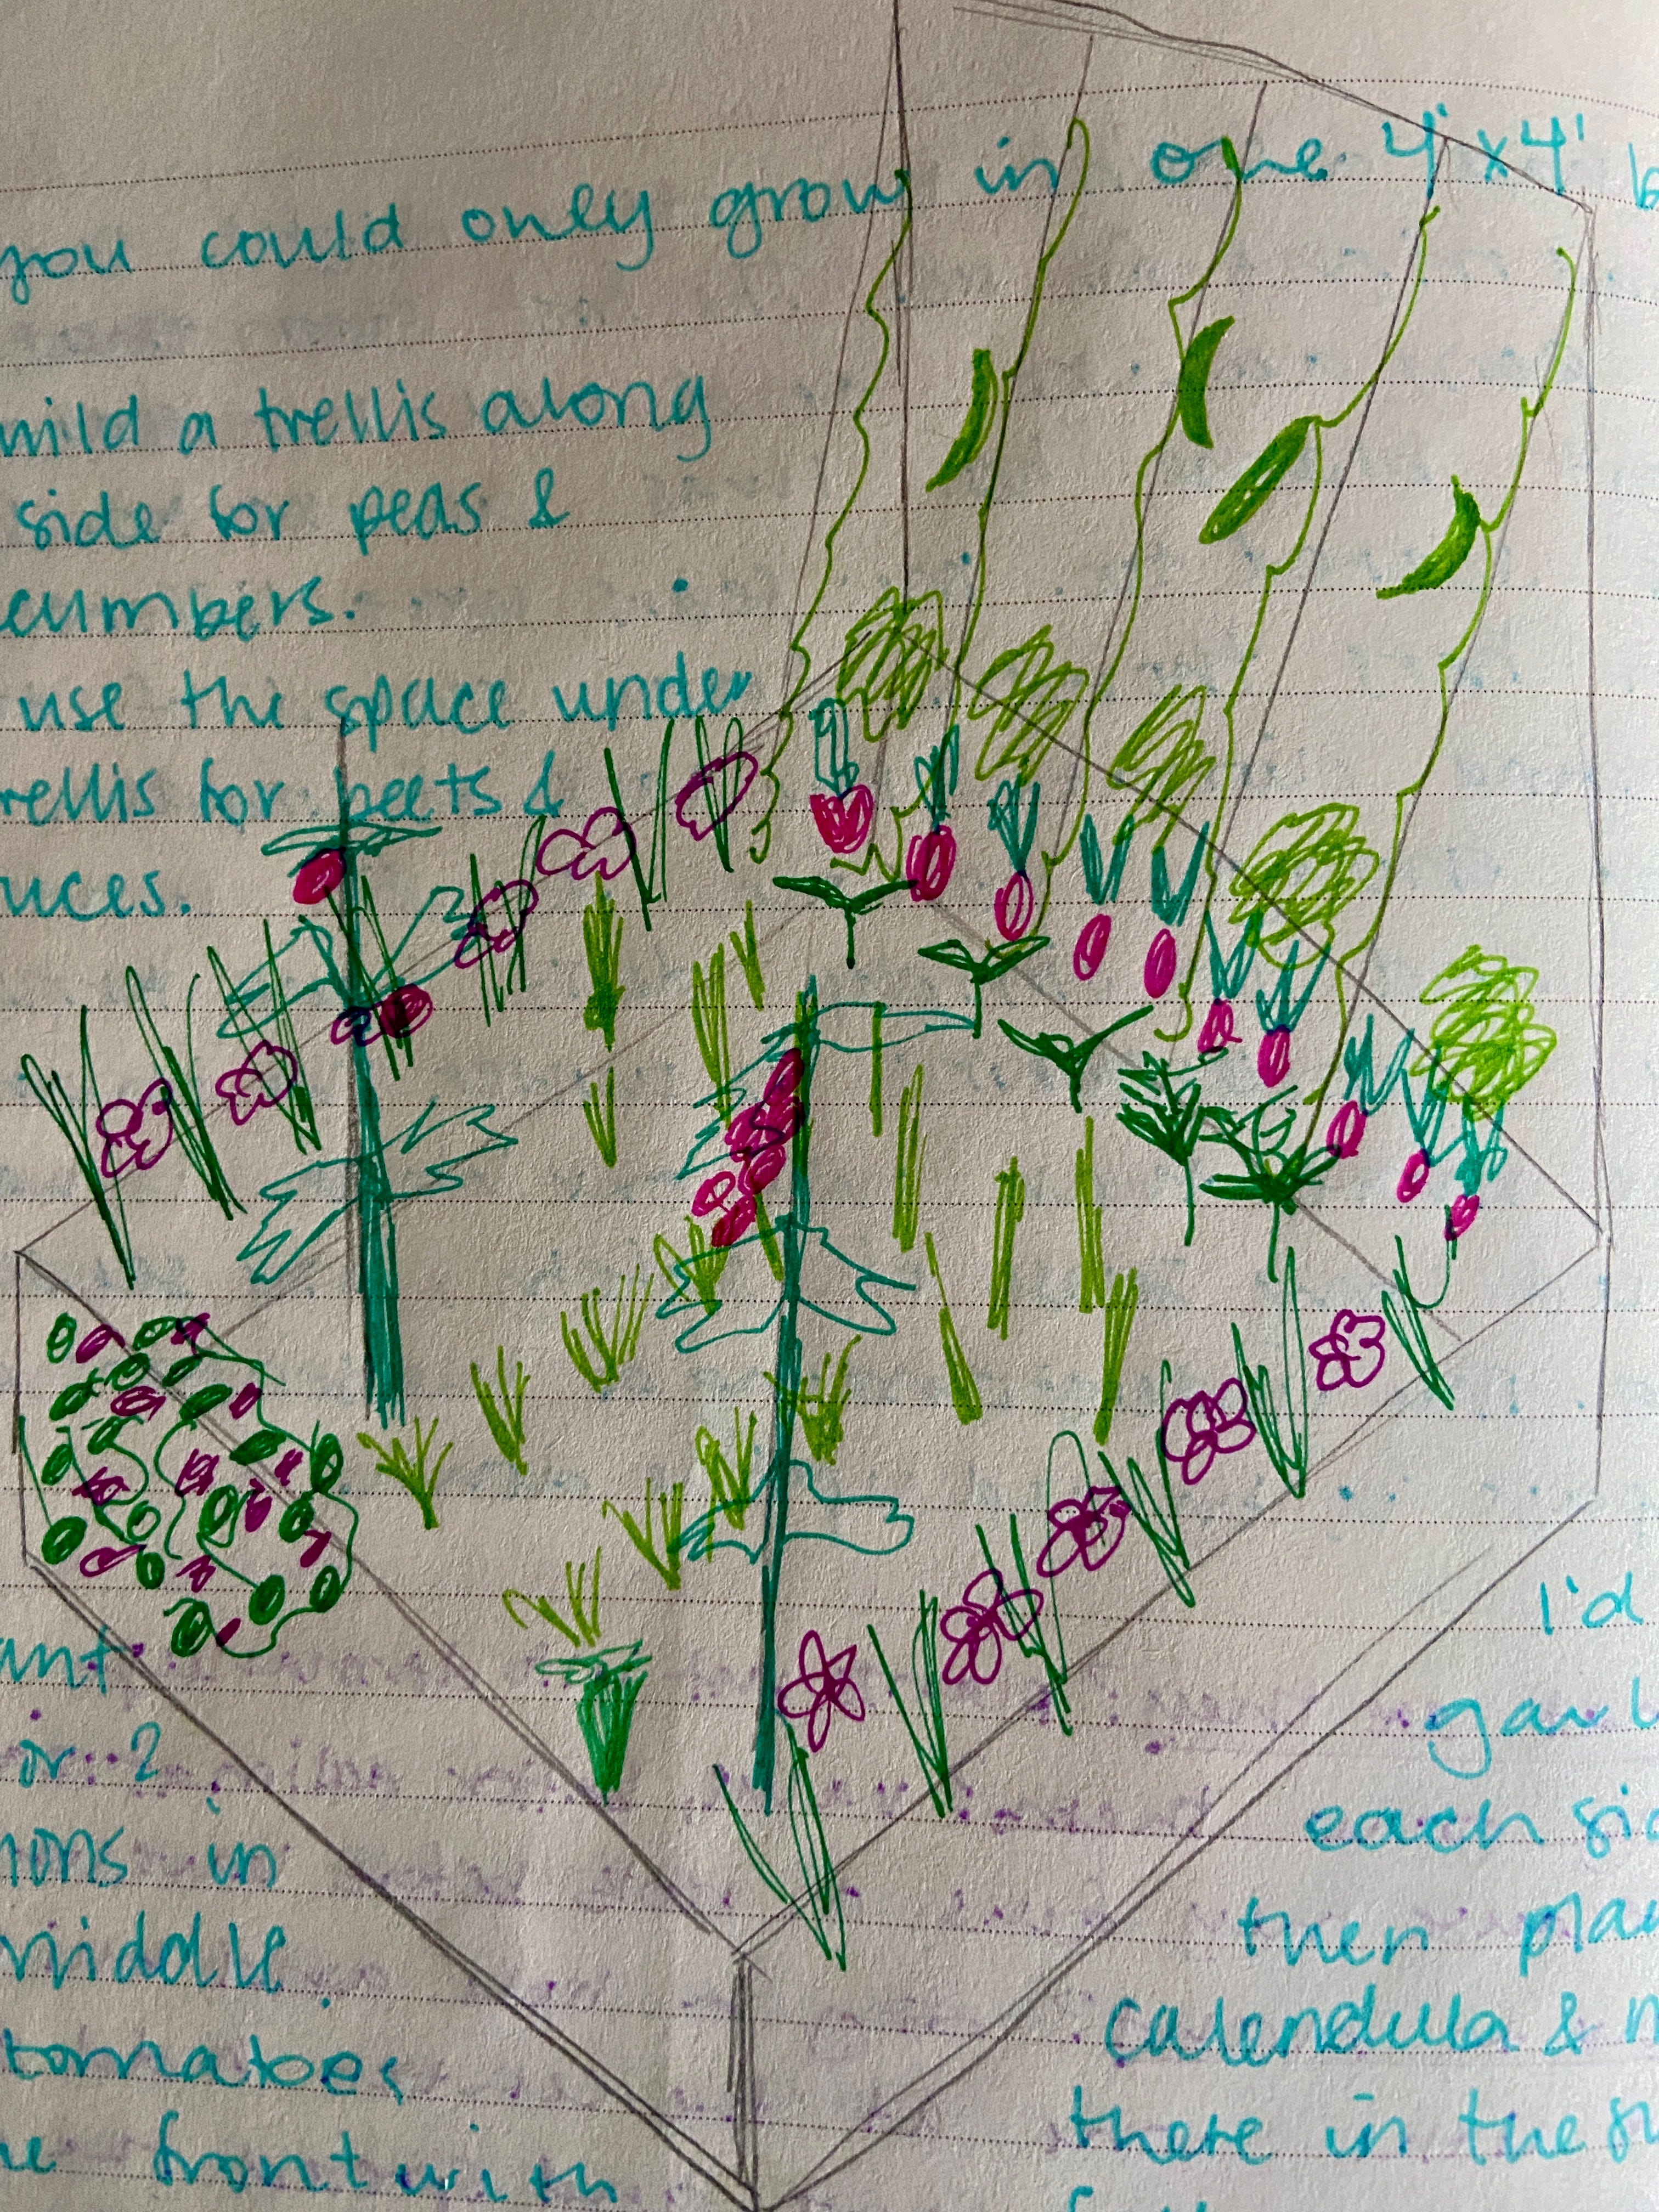 you could only grow in one 4'x4' b
uild a trellis along
side for peas &
cumbers.
use the space under
rellis for beets &
uces.
ant
or 2
ions in
middle
tomatoes
he front with
I'd
garl
each sid
then plan
calendula & n
there in the su